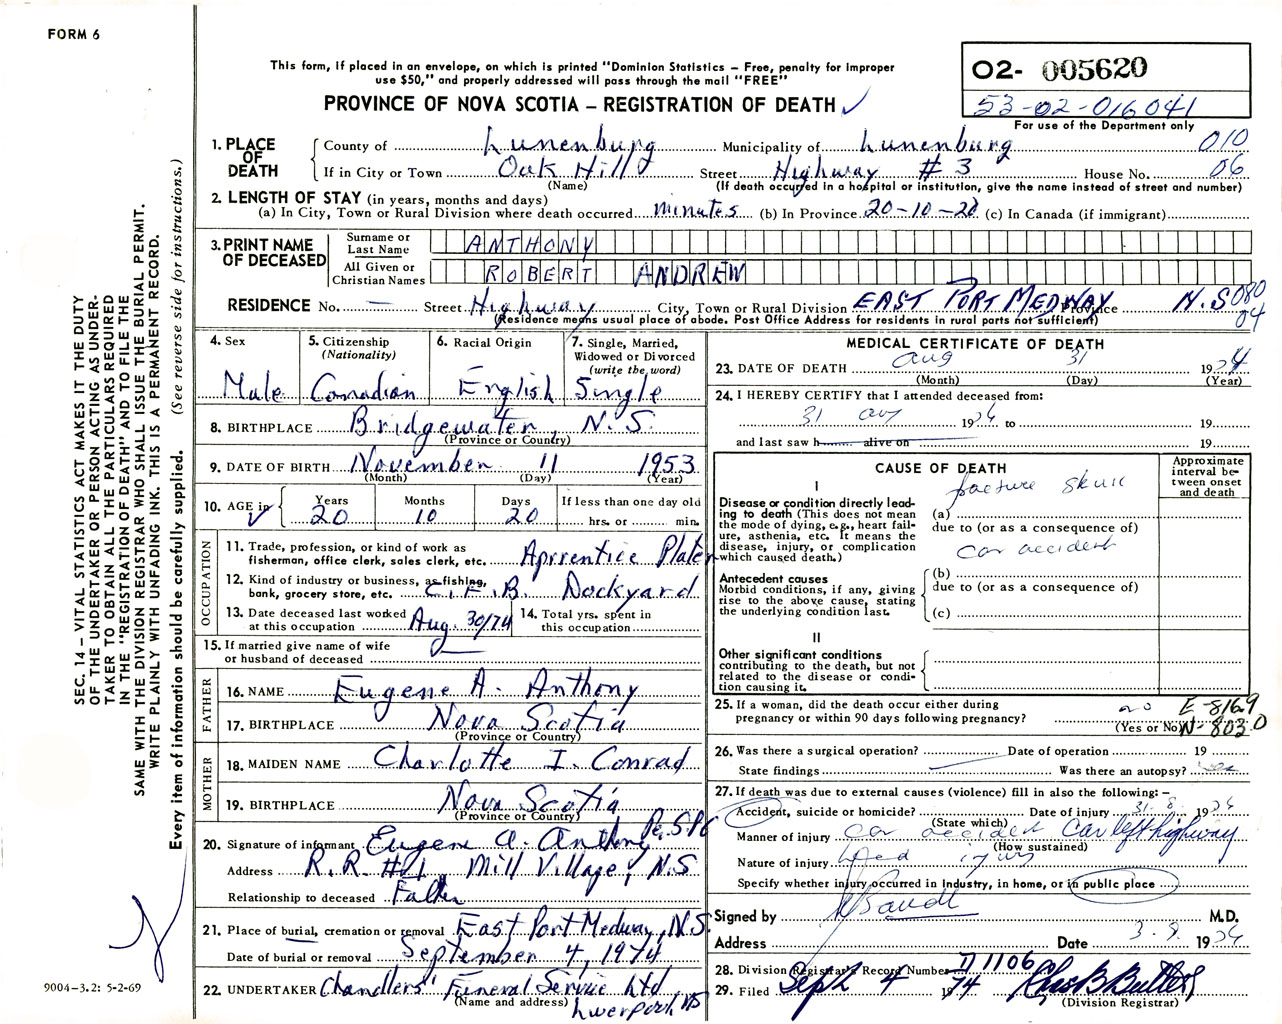 FORM 6
This form, if placed in an envelope, on which is printed "Dominion Statistics – Free, penalty for improper
use $50," and properly addressed will pass through the mail "FREE"
PROVINCE OF NOVA SCOTIA – REGISTRATION OF DEATH ✓
O2- 005620
53-02-016041
For use of the Department only
1. PLACE OF DEATH
County of Lunenburg Municipality of Lunenburg 010
If in City or Town Oak Hill Street Highway #3 House No. 06
(Name) (If death occurred in a hospital or institution, give the name instead of street and number)
2. LENGTH OF STAY (in years, months and days)
(a) In City, Town or Rural Division where death occurred minutes (b) In Province 20-10-20 (c) In Canada (if immigrant)
3. PRINT NAME OF DECEASED
Surname or Last Name ANTHONY
All Given or Christian Names ROBERT ANDREW
RESIDENCE No. — Street Highway City, Town or Rural Division EAST PORT MEDWAY Province N.S 080
(Residence means usual place of abode. Post Office Address for residents in rural parts not sufficient) 04
4. Sex
Male
5. Citizenship
(Nationality)
Canadian
6. Racial Origin
English
7. Single, Married,
Widowed or Divorced
(write the word)
Single
8. BIRTHPLACE Bridgewater, N.S.
(Province or Country)
9. DATE OF BIRTH November 11 1953
(Month) (Day) (Year)
10. AGE in ✓
Years 20
Months 10
Days 20
If less than one day old
hrs. or min.
OCCUPATION
11. Trade, profession, or kind of work as
fisherman, office clerk, sales clerk, etc. Aprrentice Plater
12. Kind of industry or business, as fishing,
bank, grocery store, etc. C.F.B. Dockyard
13. Date deceased last worked
at this occupation Aug. 30/74
14. Total yrs. spent in
this occupation
15. If married give name of wife
or husband of deceased —
FATHER
16. NAME Eugene A. Anthony
17. BIRTHPLACE Nova Scotia
(Province or Country)
MOTHER
18. MAIDEN NAME Charlotte I. Conrad
19. BIRTHPLACE Nova Scotia
(Province or Country)
20. Signature of informant Eugene A. Anthony
Address R.R. #1, Mill Village, N.S
Relationship to deceased Father
21. Place of burial, cremation or removal East Port Medway, N.S.
Date of burial or removal September 4, 1974
22. UNDERTAKER Chandlers' Funeral Service Ltd
(Name and address) Liverpool NS
MEDICAL CERTIFICATE OF DEATH
23. DATE OF DEATH Aug 31 1974
(Month) (Day) (Year)
24. I HEREBY CERTIFY that I attended deceased from:
31 Aug 1974 to 19
and last saw h alive on 19
CAUSE OF DEATH
Approximate
interval be-
tween onset
and death
I
Disease or condition directly lead-
ing to death (This does not mean
the mode of dying, e.g., heart fail-
ure, asthenia, etc. It means the
disease, injury, or complication
which caused death.)
(a) fracture skull
due to (or as a consequence of)
car accident
Antecedent causes
Morbid conditions, if any, giving
rise to the above cause, stating
the underlying condition last.
(b)
due to (or as a consequence of)
(c)
II
Other significant conditions
contributing to the death, but not
related to the disease or condi-
tion causing it.
25. If a woman, did the death occur either during
pregnancy or within 90 days following pregnancy? no
(Yes or No)
E-816.9
N-803.0
26. Was there a surgical operation? — Date of operation 19
State findings Was there an autopsy?
27. If death was due to external causes (violence) fill in also the following: –
Accident, suicide or homicide? Date of injury 31. 8. 1974
(State which)
Manner of injury car accident Car left highway
(How sustained)
Nature of injury head injury
Specify whether injury occurred in industry, in home, or in public place
Signed by M.D.
Address Date 3.9. 1974
28. Division Registrar's Record Number 1106
29. Filed Sept 4 1974 Chas B Butler
(Division Registrar)
SEC. 14 – VITAL STATISTICS ACT MAKES IT THE DUTY
OF THE UNDERTAKER OR PERSON ACTING AS UNDER-
TAKER TO OBTAIN ALL THE PARTICULARS REQUIRED
IN THE "REGISTRATION OF DEATH" AND TO FILE THE
SAME WITH THE DIVISION REGISTRAR WHO SHALL ISSUE THE BURIAL PERMIT.
WRITE PLAINLY WITH UNFADING INK. THIS IS A PERMANENT RECORD.
Every item of information should be carefully supplied. (See reverse side for instructions.)
9004-3.2: 5-2-69